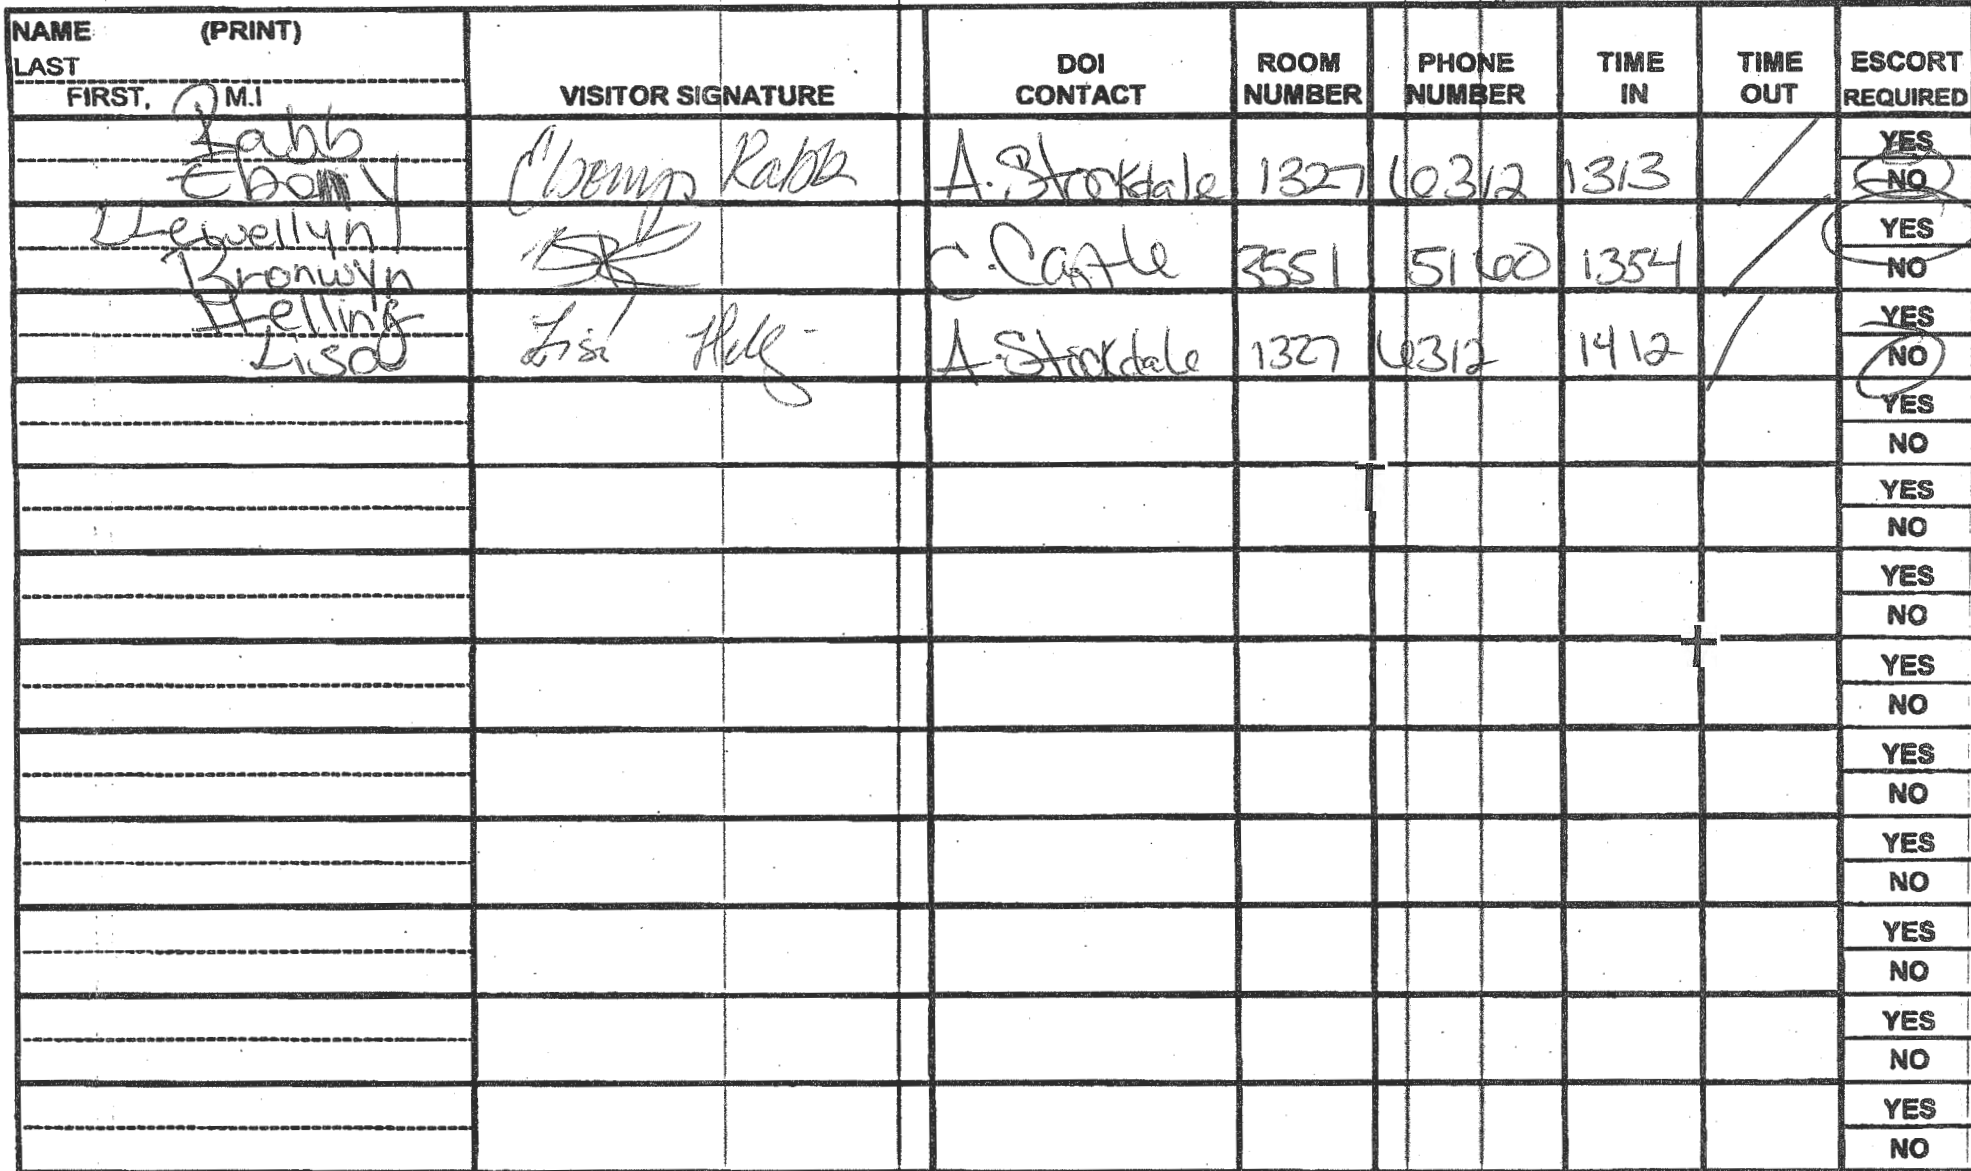 NAME (PRINT)
LAST
FIRST, M.I
VISITOR SIGNATURE
DOI CONTACT
ROOM NUMBER
PHONE NUMBER
TIME IN
TIME OUT
ESCORT REQUIRED
Rabb
Ebony
Ebony Rabb
A. Stockdale 1327 6312 1313
YES
NO
Llewellyn
Bronwyn
C. Castle 3551 5160 1354
YES
NO
Helling
Lisa
Lisa
A. Stockdale 1327 6312 1412
YES
NO
YES
NO
YES
NO
YES
NO
YES
NO
YES
NO
YES
NO
YES
NO
YES
NO
YES
NO